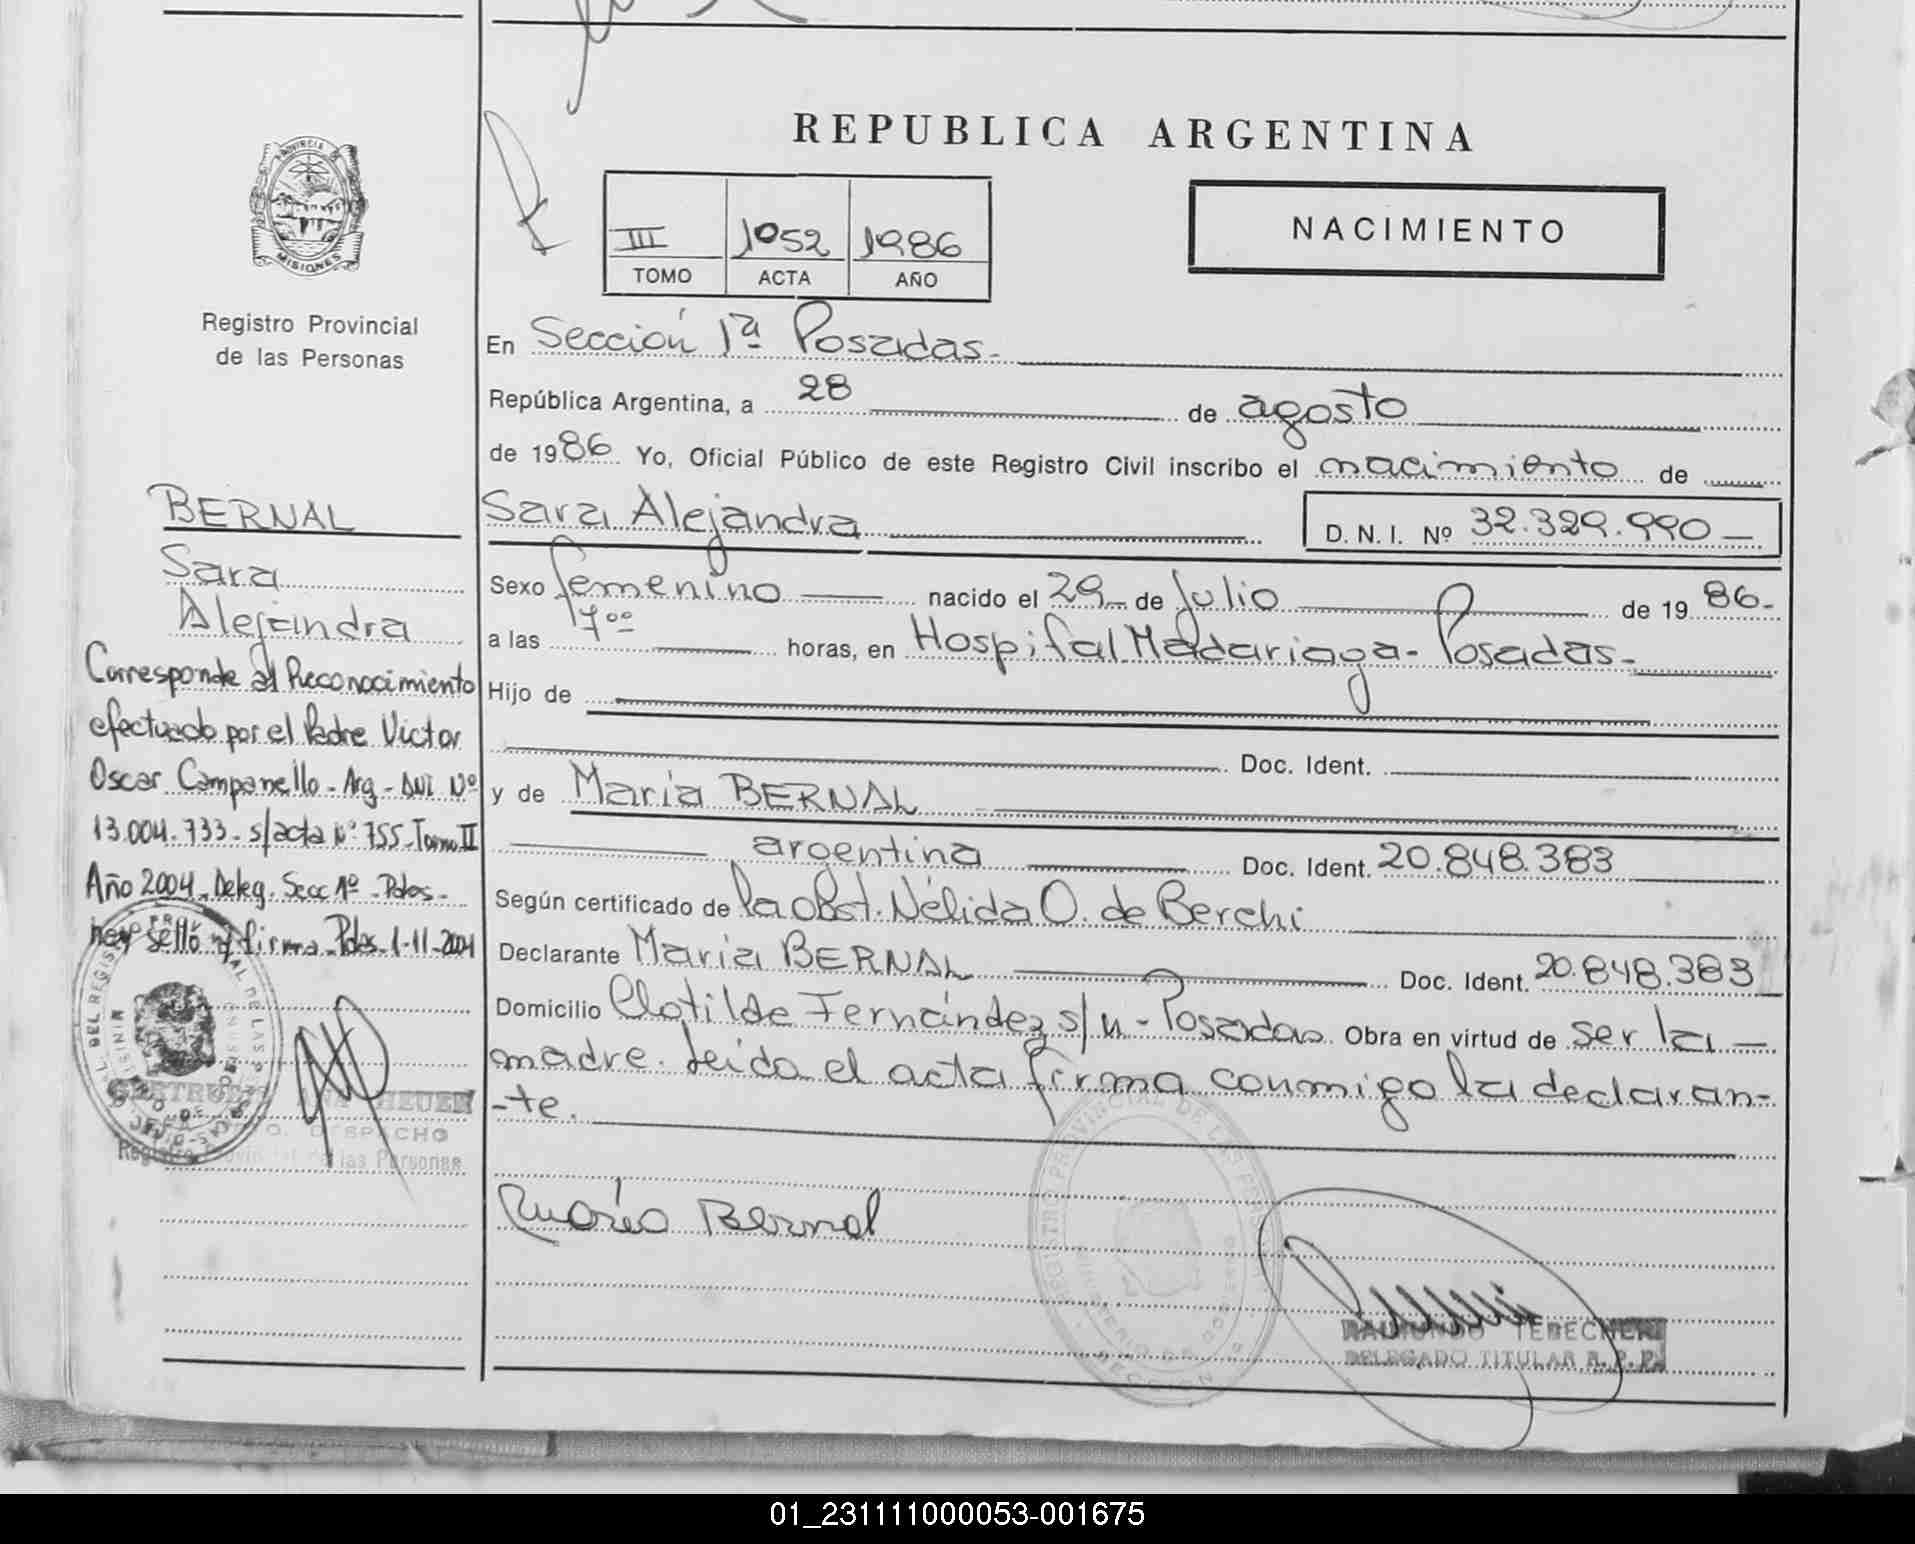 REPUBLICA ARGENTINA
PROVINCIA DE
MISIONES
Registro Provincial
de las Personas
III 1052 1986
TOMO ACTA AÑO
NACIMIENTO
En Sección 1ª Posadas.
República Argentina, a 28 de agosto
de 1986. Yo, Oficial Público de este Registro Civil inscribo el nacimiento de
Sara Alejandra D. N. I. Nº 32.329.990
Sexo femenino nacido el 29 de Julio de 1986.
a las 7⁰⁰ horas, en Hospital Madariaga - Posadas.
Hijo de
Doc. Ident.
y de María BERNAL
argentina Doc. Ident. 20.848.383
Según certificado de la Obst. Nélida O. de Berchi
Declarante María BERNAL Doc. Ident. 20.848.383
Domicilio Clotilde Fernández s/n - Posadas Obra en virtud de ser la
madre. Leída el acta firma conmigo la declaran-
-te.
María Bernal
RAIMUNDO TEBECHERI
DELEGADO TITULAR R. P. P.
BERNAL
Sara
Alejandra
Corresponde al Reconocimiento
efectuado por el Padre Victor
Oscar Campanello - Arg - DNI Nº
13.004.733 - s/acta Nº 755 - Tomo II
Año 2004 - Deleg. Secc 1º - Pdas -
hay sello y firma - Pdas - 1-11-2004
DESPACHO
Registro Provincial de las Personas
01_231111000053-001675